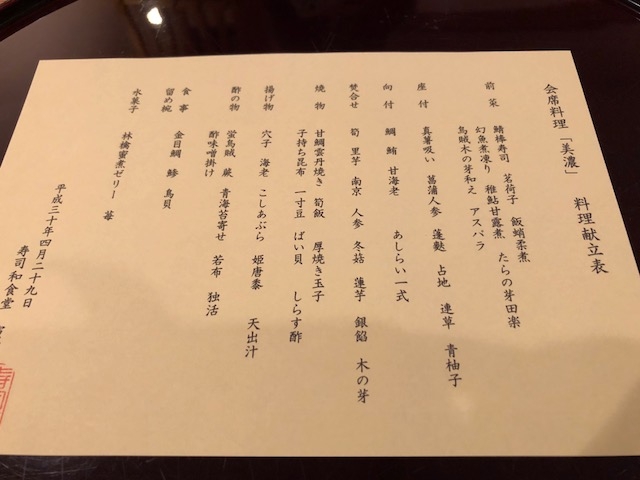 会席料理「美濃」 料理献立表
前菜 鯖棒寿司 茗荷子 飯蛸柔煮
幻魚煮凍り 稚鮎甘露煮 たらの芽田楽
烏賊木の芽和え アスパラ
座付 真薯吸い 菖蒲人参 蓬麩 占地 連草 青柚子
向付 鯛 鮪 甘海老 あしらい一式
焚合せ 筍 里芋 南京 人参 冬菇 蓮芋 銀餡 木の芽
焼物 甘鯛雲丹焼き 筍飯 厚焼き玉子
子持ち昆布 一寸豆 ばい貝 しらす酢
揚げ物 穴子 海老 こしあぶら 姫唐黍 天出汁
酢の物 蛍烏賊 蕨 青海苔寄せ 若布 独活
酢味噌掛け
食事 金目鯛 鯵 鳥貝
留め椀
水菓子 林檎蜜煮ゼリー 苺
平成三十年四月二十九日
寿司和食堂